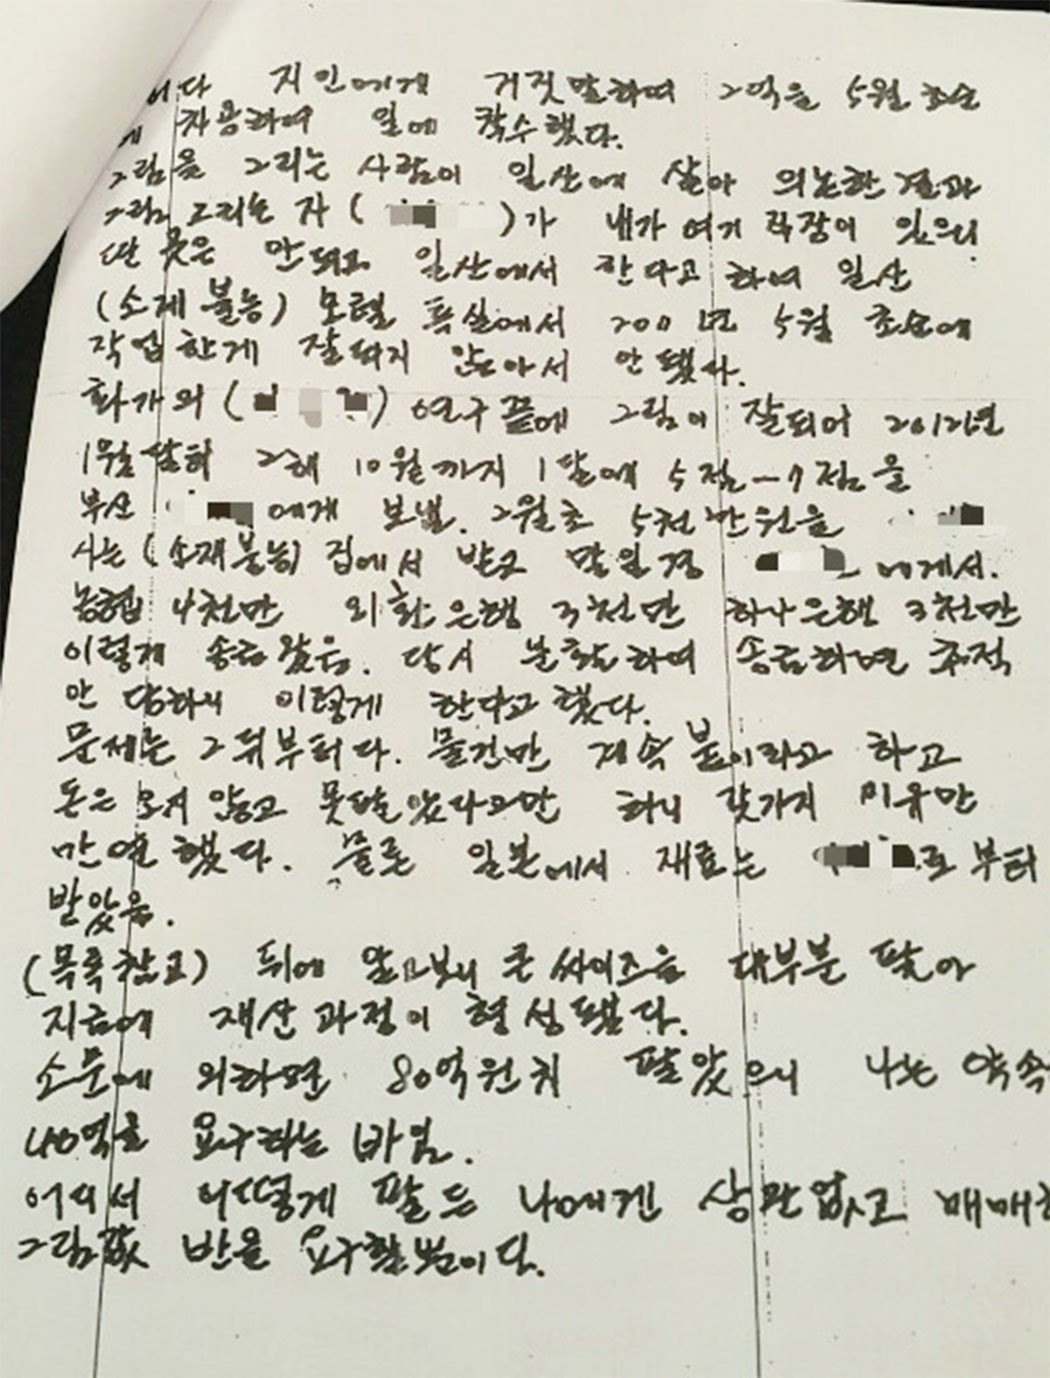 이다 지인에게 거짓말하며 2억을 5월 초순
에 차용하여 일에 착수했다.
그림을 그리는 사람이 일산에 살아 의논한 결과
그림 그리는 자 ( )가 내가 여기 직장이 있으니
딴 곳은 안되고 일산에서 한다고 하여 일산
(소재 불능) 모텔 특실에서 2001년 5월 초순에
작업한게 잘되지 않아서 안 됐다.
화가와 ( ) 연구 끝에 그림이 잘되어 2012년
1월 그해 10월까지 1달에 5점-7점을
부산 에게 보냄. 2월초 5천만원을
사는 (소재불능) 집에서 받고 말일경 에게서.
농협 4천만 외환은행 3천만 하나은행 3천만
이렇게 송금 왔음. 당시 분할하여 송금하면 추적
안 당하니 이렇게 한다고 했다.
문제는 그 뒤부터다. 물건만 계속 붙이라고 하고
돈은 오지 않고 못팔았다고만 하니 갖가지 이유만
만연했다. 물론 일본에서 재료는 로부터
받았음.
(목록참고) 뒤에 알고보니 큰 싸이즈을 대부분 팔아
지금에 재산 과정이 형성됐다.
소문에 의하면 80억원치 팔았으니 나는 약속
40억을 요구하는 바임.
어디서 어떻게 팔든 나에겐 상관없고 매매한
그림값 반을 요구할뿐이다.